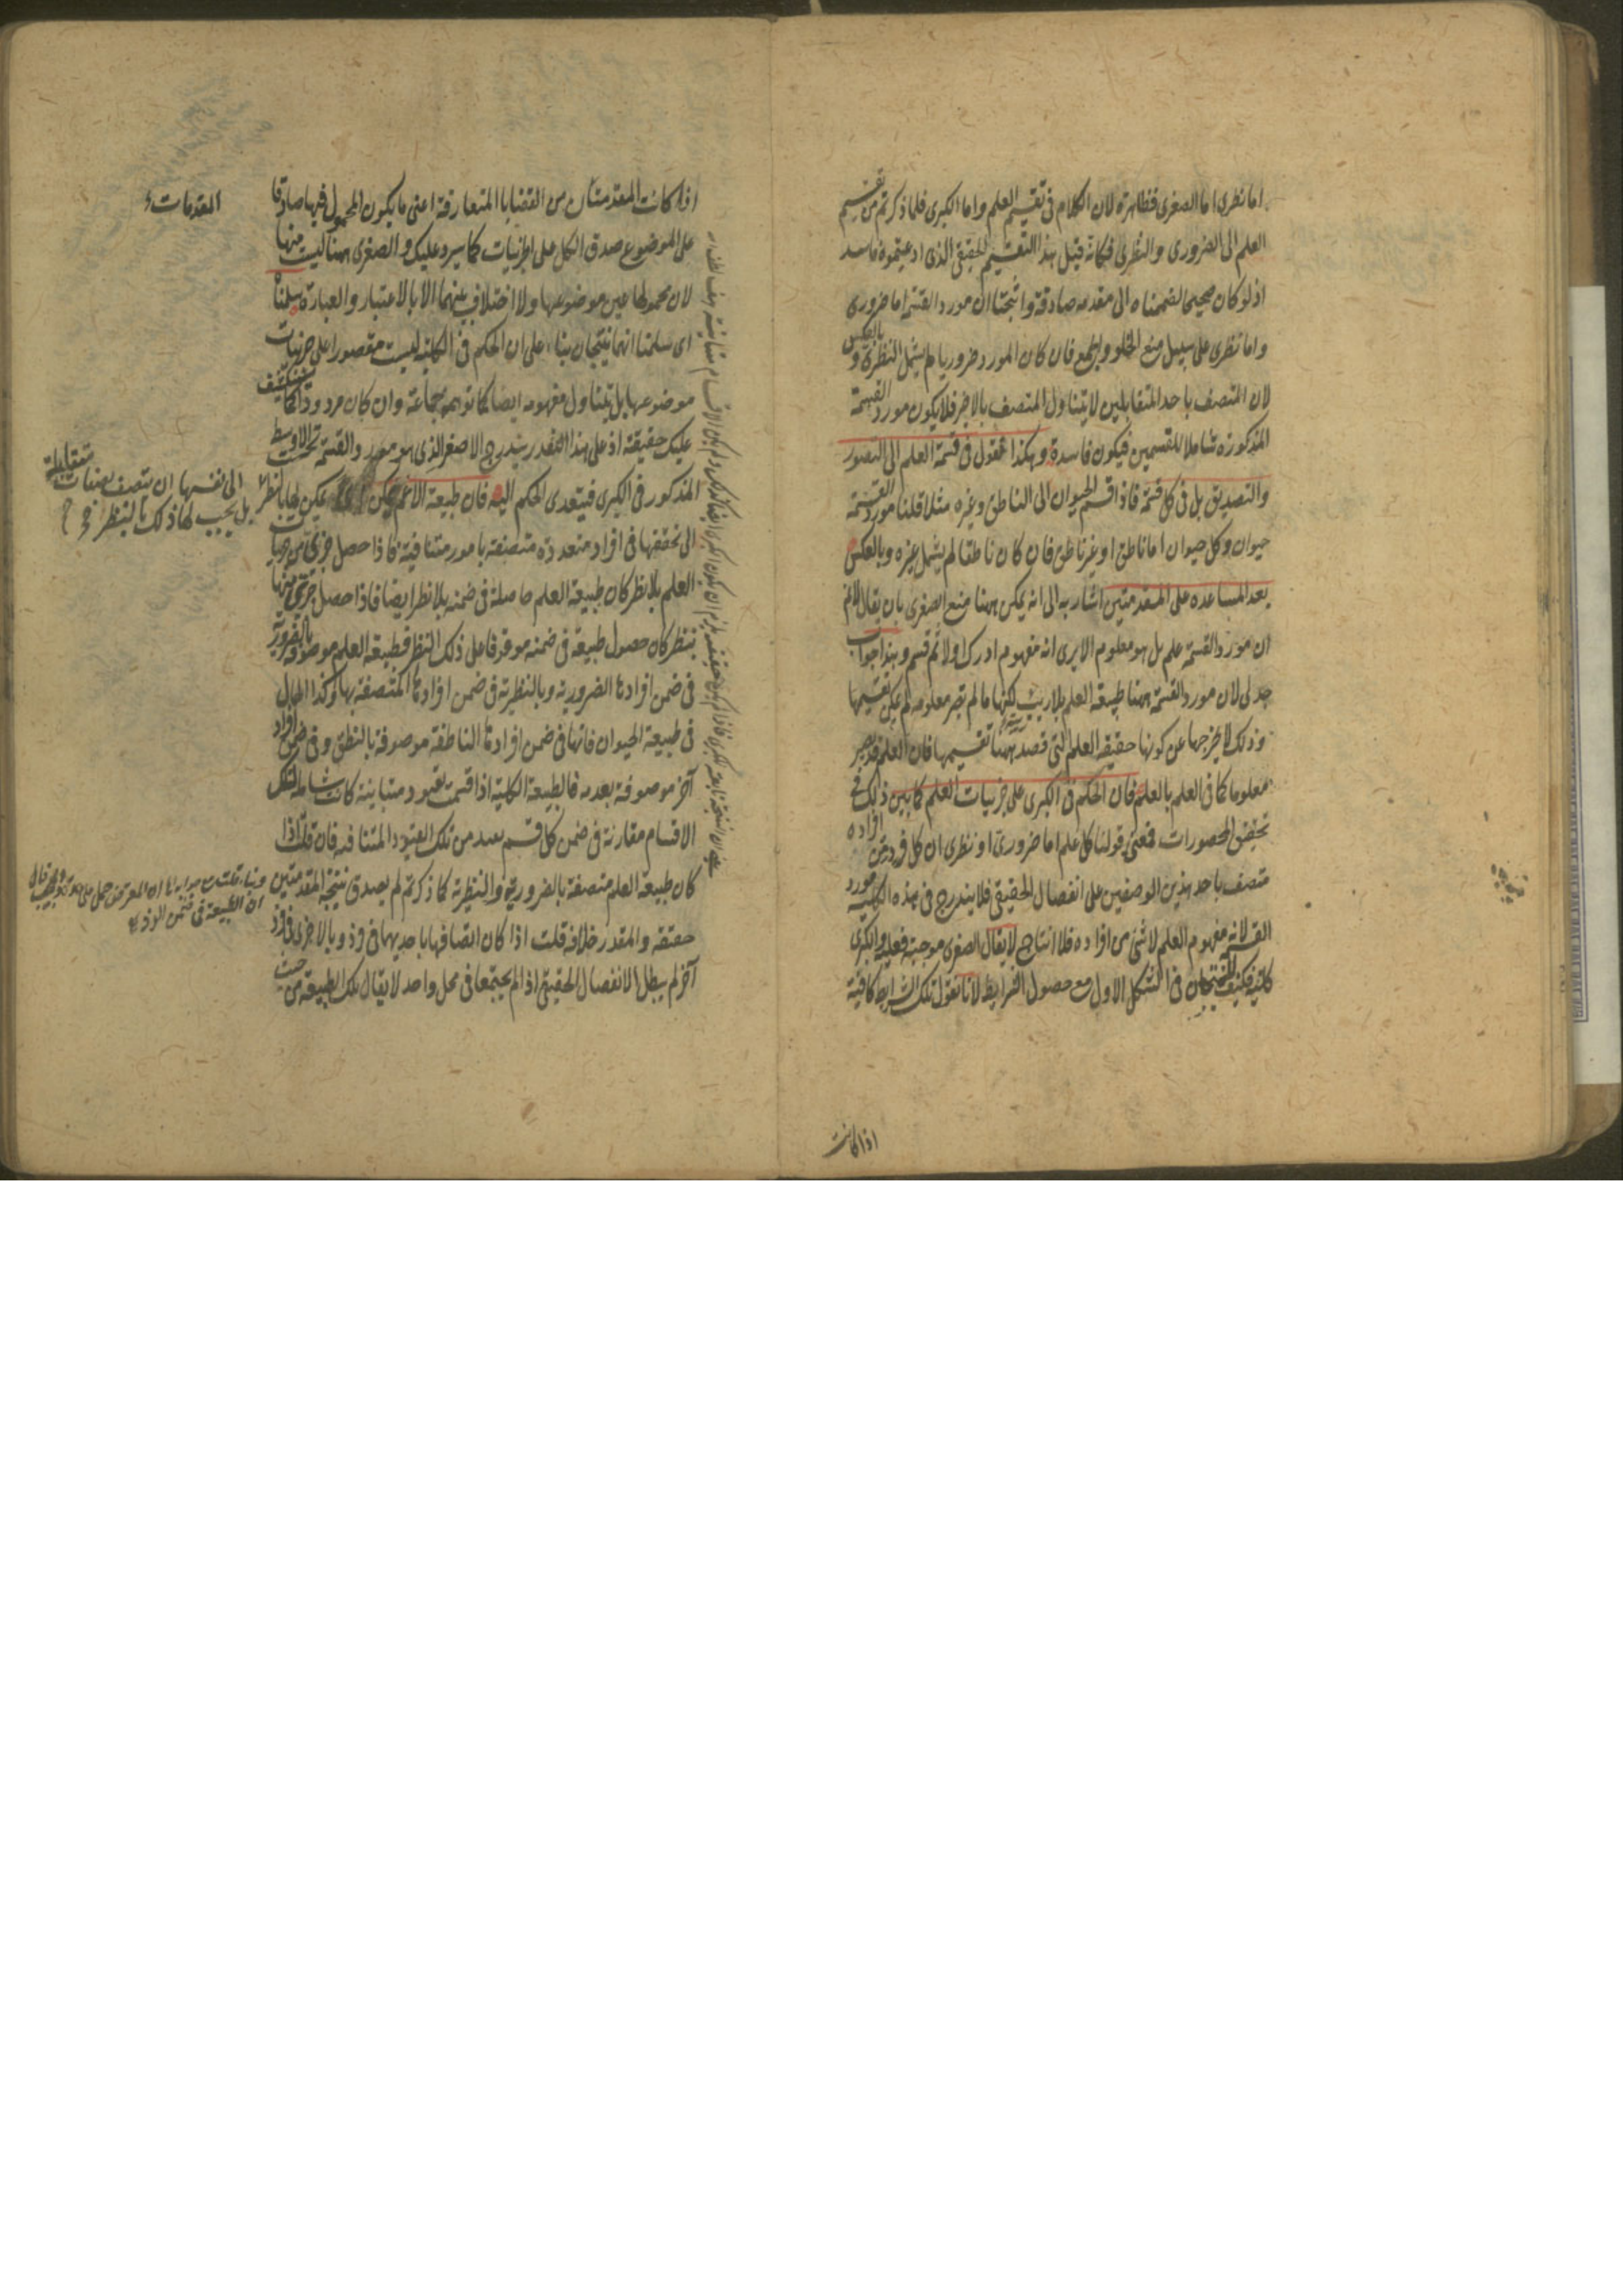 اما نظرى اما الصغرى فظاهرة لان الكلام فى تقسيم العلم واما الكبرى فلما ذكرتم من تقسيم
العلم الى الضرورى والنظرى فكانه قيل هذا التقسيم الحقيقى الذى ادعيتموه فاسد
اذ لو كان صحيحا لضممناه الى مقدمه صادقة وانتجتا ان مورد القسمة اما ضرورى
واما نظرى على سبيل منع الخلو والجمع فان كان المورد ضروريا لم يشمل النظرى وبالعكس
لان المتصف باحد المتقابلين لا يتناول المتصف بالاخر فلا يكون مورد القسمة
المذكورة شاملا للقسمين فيكون فاسدة وهكذا نقول فى قسمة العلم الى التصور
والتصديق بل فى كل قسمة فاذا قسم الحيوان الى الناطق وغيره مثلا قلنا مورد القسمة
حيوان وكل حيوان اما ناطق او غير ناطق فان كان ناطقا لم يشمل غيره وبالعكس
بعد المساعده على المقدمتين اشار به الى انه يمكن ههنا منع الصغرى بان يقال لا نم
ان مورد القسمة علم بل هو معلوم الا يرى انه مفهوم ادرك اولا ثم قسم وهذا جواب
جدلى لان مورد القسمة ههنا طبيعة العلم بلا ريب لكنها ما لم تصر معلومه لم يمكن تقسيمها
وذلك لا يخرجها عن كونها حقيقه العلم التى قصد ههنا تقسيمها فان العلم قد يصير
معلوما كما فى العلم بالعلم فان الحكم فى الكبرى على جزئيات العلم كما بين ذلك فى
تحقيق المحصورات فمعنى قولنا كل علم اما ضرورى او نظرى ان كل فرد من افراده
متصف باحد هذين الوصفين على انفصال الحقيقى فلا يندرج فى هذه الكلية مورد
القسمة لانه مفهوم العلم لا شئ من افراده فلا انتاج لا يقال الصغرى موجبة فعلية والكبرى
كلية فكيف لا تنتجان فى الشكل الاول مع حصول الشرايط لانا نقول تلك الشرايط كافية
اذا كانت
اذا كانت المقدمتان من القضايا المتعارفة اعنى ما يكون المحمول فيها صادقا
على الموضوع صدق الكل على الجزئيات كما سيرد عليك والصغرى ههنا ليست منها
لان محمولها عين موضوعها ولا اختلاف بينهما الا بالاعتبار والعبارة سلمناه
اى سلمنا انهما ينتجان بناء على ان الحكم فى الكلية ليست مقصورا على جزئيات
موضوعها بل يتناول مفهومه ايضا كما توهمه جماعة وان كان مردودا كما سنكشف
عليك حقيقة اذ على هذا التقدير يندرج الاصغر الذى هو مورد القسمة تحت الاوسط
المذكور فى الكبرى فيتعدى الحكم اليه فان طبيعة الاعم يمكن لها بالنظر
الى تحققها فى افراد متعددة متصفة بامور متنافية فاذا حصل جزئى من جزئيات
العلم بلا نظر كان طبيعة العلم حاصلة فى ضمنه بلا نظر ايضا فاذا حصل جزئى منها
بنظر كان حصول طبيعة فى ضمنه موقوفا على ذلك النظر فطبيعة العلم موصوفة بالضرورة
فى ضمن افرادها الضرورية وبالنظرية فى ضمن افرادها المتصفة بها وكذا الحال
فى طبيعة الحيوان فانها فى ضمن افرادها الناطقة موصوفة بالنطق وفى ضمن افراد
آخر موصوفة بعدمه فالطبيعة الكلية اذا قسمت بقيود متباينة كانت شاملة لتلك
الاقسام مقارنة فى ضمن كل قسم بعدد من تلك القيود المتنافيه فان قلت اذا
كان طبيعة العلم متصفة بالضرورية والنظرية كما ذكرتم لم يصدق نتيجة المقدمتين
حقيقه والمقدر خلافه قلت اذا كان اتصافها باحديهما فى فرد وبالاخرى فى فرد
آخر لم يبطل الانفصال الحقيقى اذ لم يجتمعا فى محل واحد لا يقال تلك الطبيعة من حيث
المقدمات
الى نفسها ان تتصف بصفات متقابلة
بل يجب لها ذلك بالنظر
ان الطبيعة فى ضمن